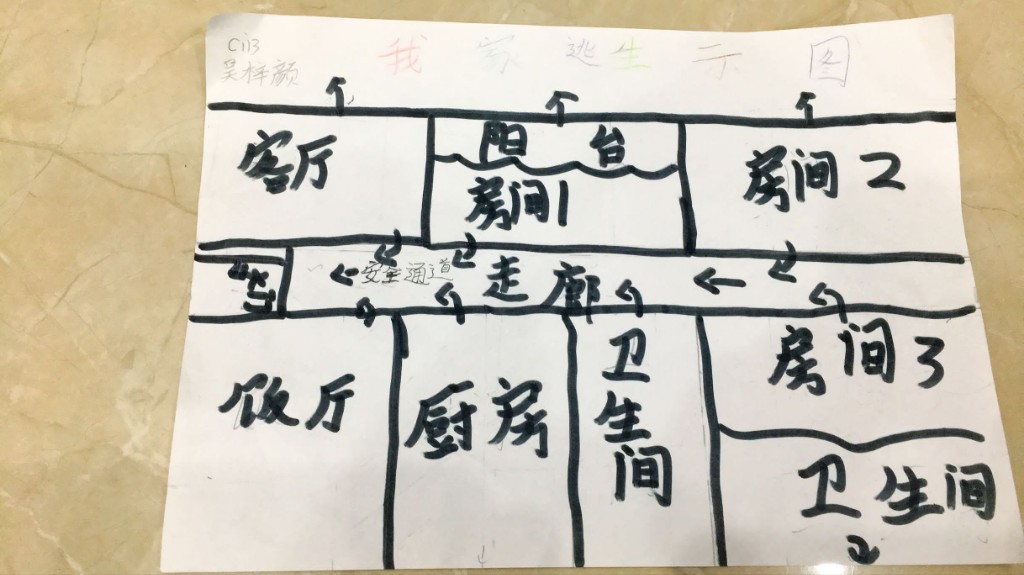 C113
吴梓颜
我家逃生示图
客厅
阳台
房间1
房间2
安全通道
走廊
饭厅
厨房
卫生间
房间3
卫生间